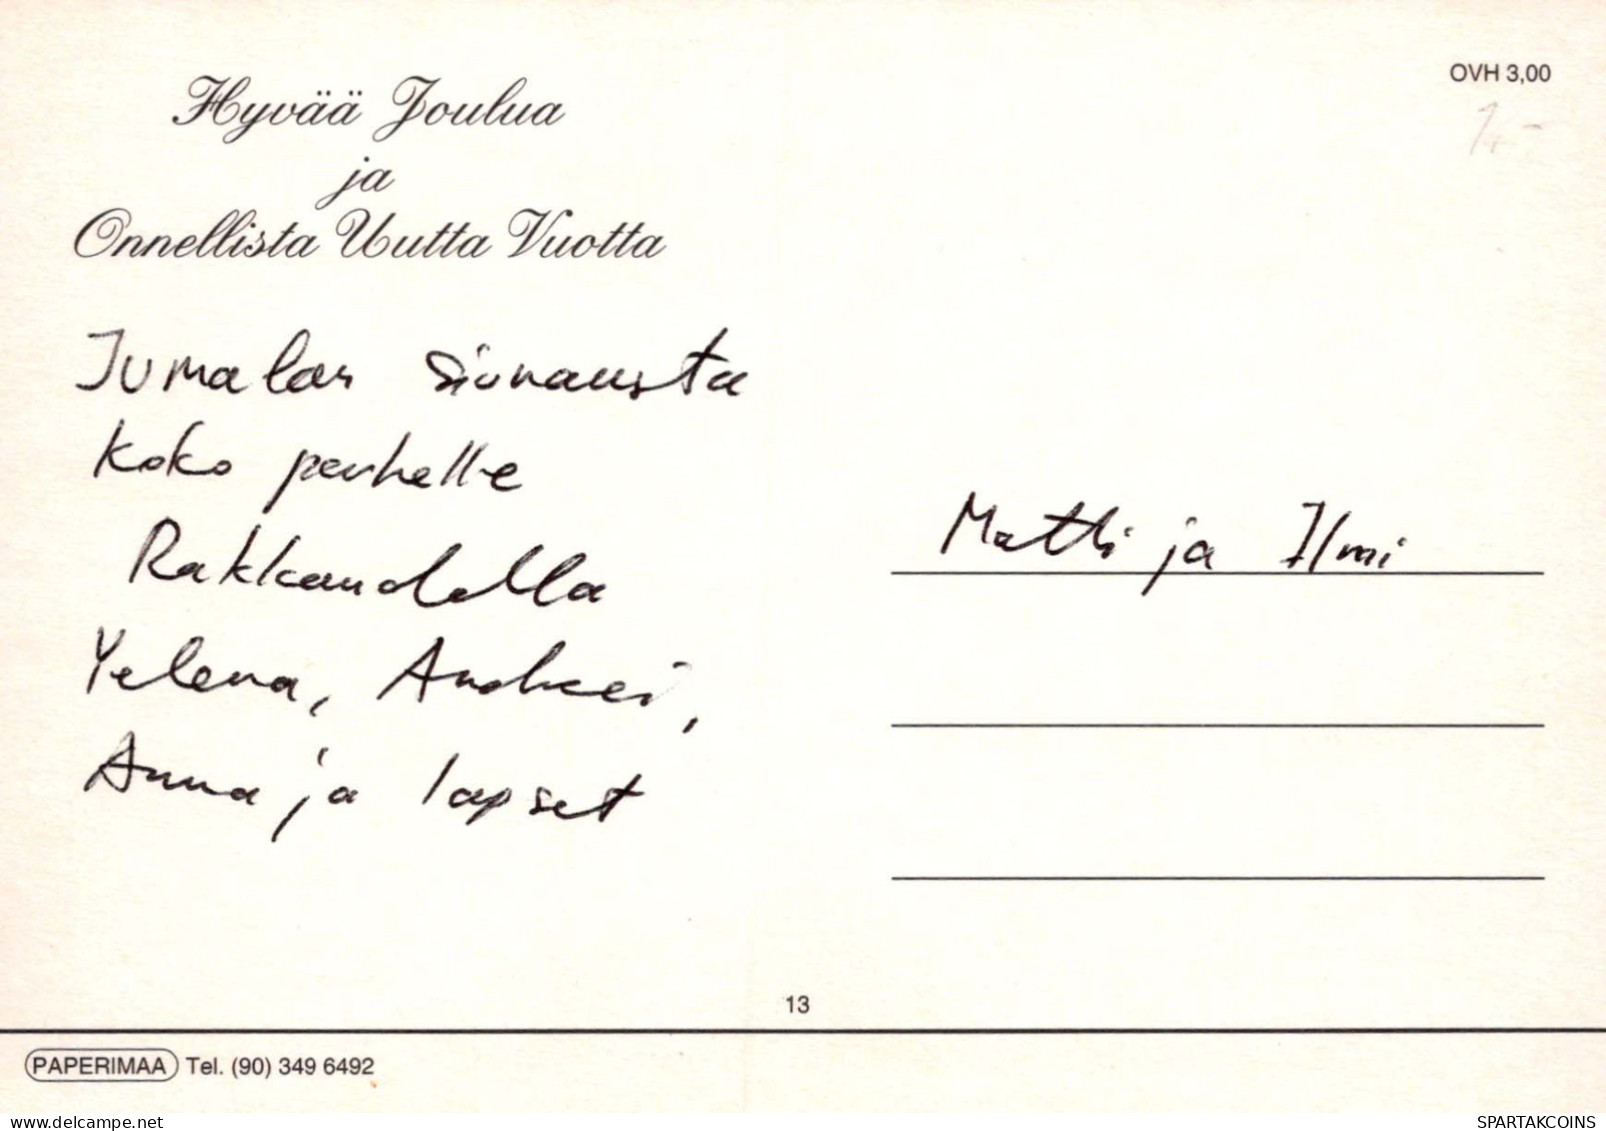 Hyvää Joulua
ja
Onnellista Uutta Vuotta
Jumalan siunausta
koko perhelle
Rakkaudella
Yelena, Andrei,
Anna ja lapset
OVH 3,00
Matti ja Ilmi
13
PAPERIMAA Tel. (90) 349 6492
delcampe.net
SPARTAKCOINS